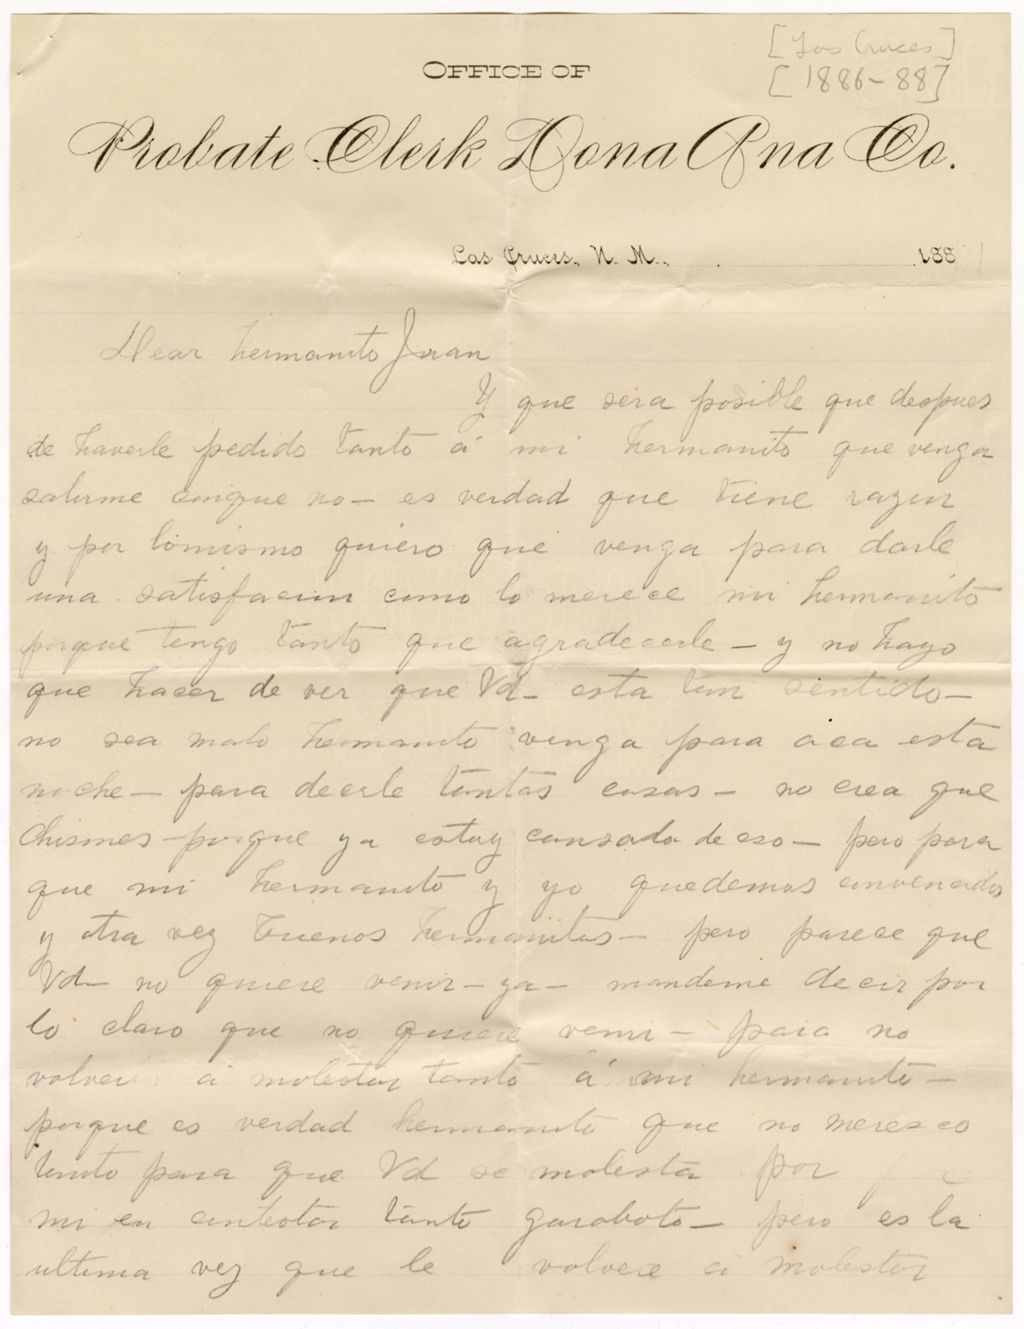 [Las Cruces]
[1886-88]
OFFICE OF
Probate Clerk Dona Ana Co.
Las Cruces, N. M., 188
Dear hermanito Juan
Y que sera posible que despues
de haverle pedido tanto á mi hermanito que venga
salirme conque no - es verdad que tiene razon
y por lo mismo quiero que venga para darle
una satisfacion como lo merece mi hermanito
porque tengo tanto que agradecerle - y no hayo
que hacer de ver que Vd - esta tan sentido -
no sea malo hermanito venga para aca esta
noche - para decirle tantas cosas - no crea que
chismes - porque ya estoy cansada de eso - pero para
que mi hermanito y yo quedemos
y otra vez buenos hermanitos - pero parece que
Vd - no quiere venir - ya - mandeme decir por
lo claro que no quiere venir - para no
volver á molestar tanto á mi hermanito -
porque es verdad hermanito que no meresco
tanto para que Vd se molesta por
mi en contestar tanto garaboto - pero es la
ultima vez que le volvere á molestar